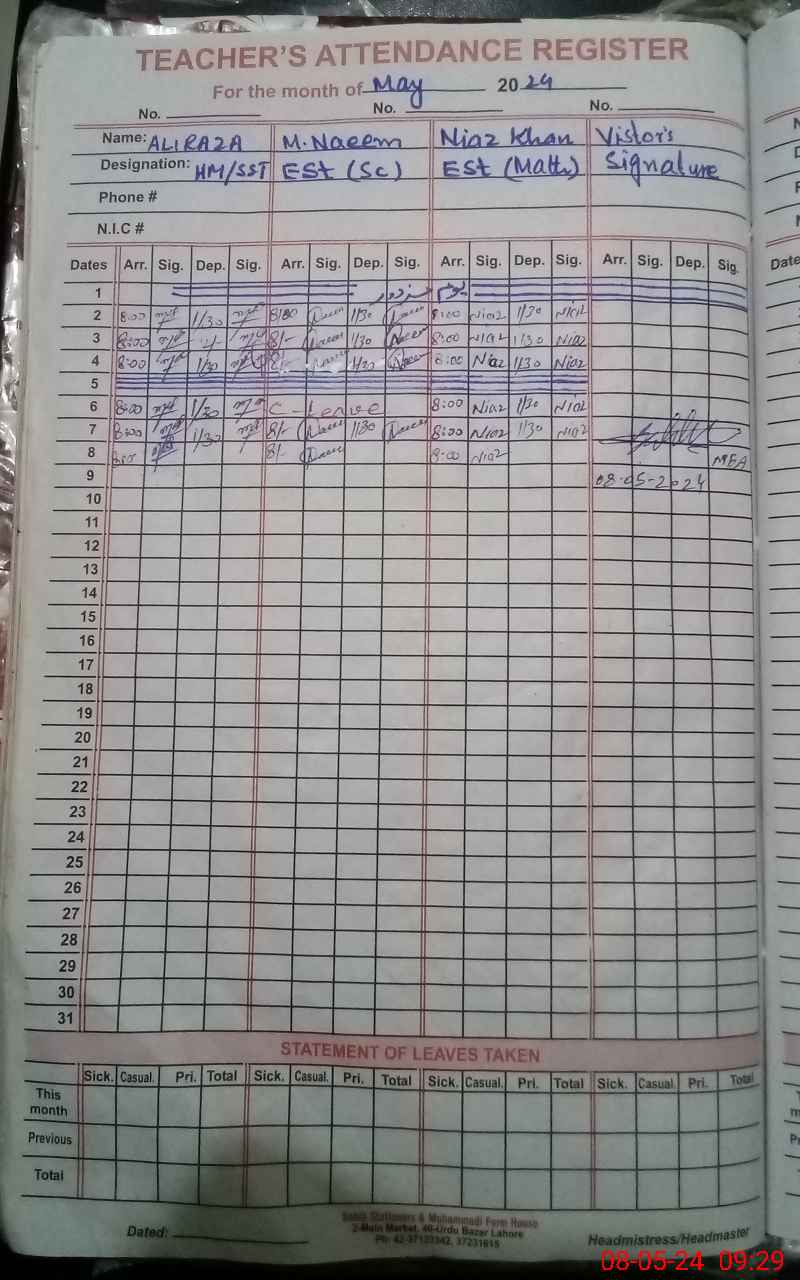 TEACHER'S ATTENDANCE REGISTER
For the month of May 2024
No. No. No.
Name: ALI RAZA M. Naeem Niaz Khan Vistor's
Designation: HM/SST ESt (Sc) ESt (Math) Signature
Phone #
N.I.C #
Dates Arr. Sig. Dep. Sig. Arr. Sig. Dep. Sig. Arr. Sig. Dep. Sig. Arr. Sig. Dep. Sig.
1 یوم مزدور
2 8:00 1/30 8/00 Naeem 1/30 Naeem 8:00 Niaz 1/30 Niaz
3 8:00 8/- Naeem 1/30 Naeem 8:00 Niaz 1/30 Niaz
4 8:00 1/30 8/- Naeem 1/30 Naeem 8:00 Niaz 1/30 Niaz
5
6 8:00 1/30 C-Leave 8:00 Niaz 1/30 Niaz
7 8:00 1/30 8/- Naeem 1/30 Naeem 8:00 Niaz 1/30 Niaz
8 8:00 8/- Naeem 8:00 Niaz MEA
9 08-05-2024
10
11
12
13
14
15
16
17
18
19
20
21
22
23
24
25
26
27
28
29
30
31
STATEMENT OF LEAVES TAKEN
Sick. Casual. Pri. Total Sick. Casual. Pri. Total Sick. Casual. Pri. Total Sick. Casual. Pri. Total
This
month
Previous
Total
Sabih Stationers & Muhammadi Form House
2-Main Market, 40-Urdu Bazar Lahore
Ph: 42-37133342, 37231615
Dated: Headmistress/Headmaster
08-05-24 09:29